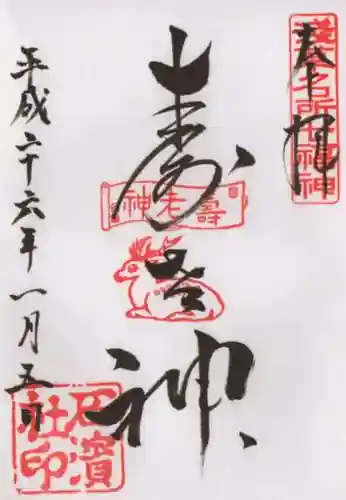 奉拝
浅草名所七福神
寿老神
壽老神
平成二十六年一月五日
石濱社印